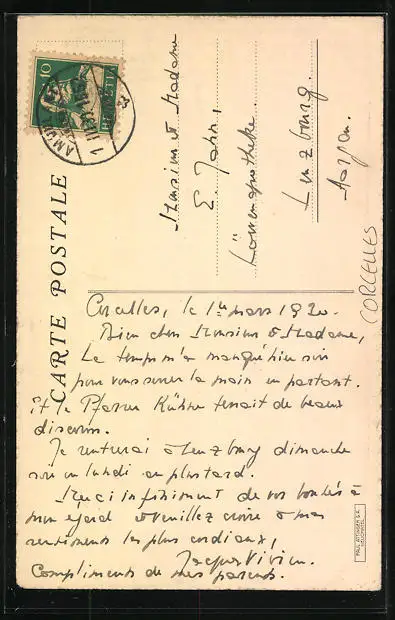 CARTE POSTALE
HELVETIA
10
Monsieur & Madame
E. Jahn,
Löwenapotheke.
Lenzbourg.
Aargau.
CORCELLES
Corcelles, le 1er mars 1920.
Bien chers Monsieur & Madame,
Le temps m'a manqué hier soir
pour vous serrer la main en partant.
Et le Pfarrer tenait de beaux
discours.
Je rentrerai à Lenzburg dimanche
soir ou lundi au plus tard.
Merci infiniment de vos bontés à
mon égard & veuillez croire à mes
sentiments les plus cordiaux,
Jacques Vivien.
Compliments de mes parents.
PAUL ATTINGER S.A.
NEUCHATEL